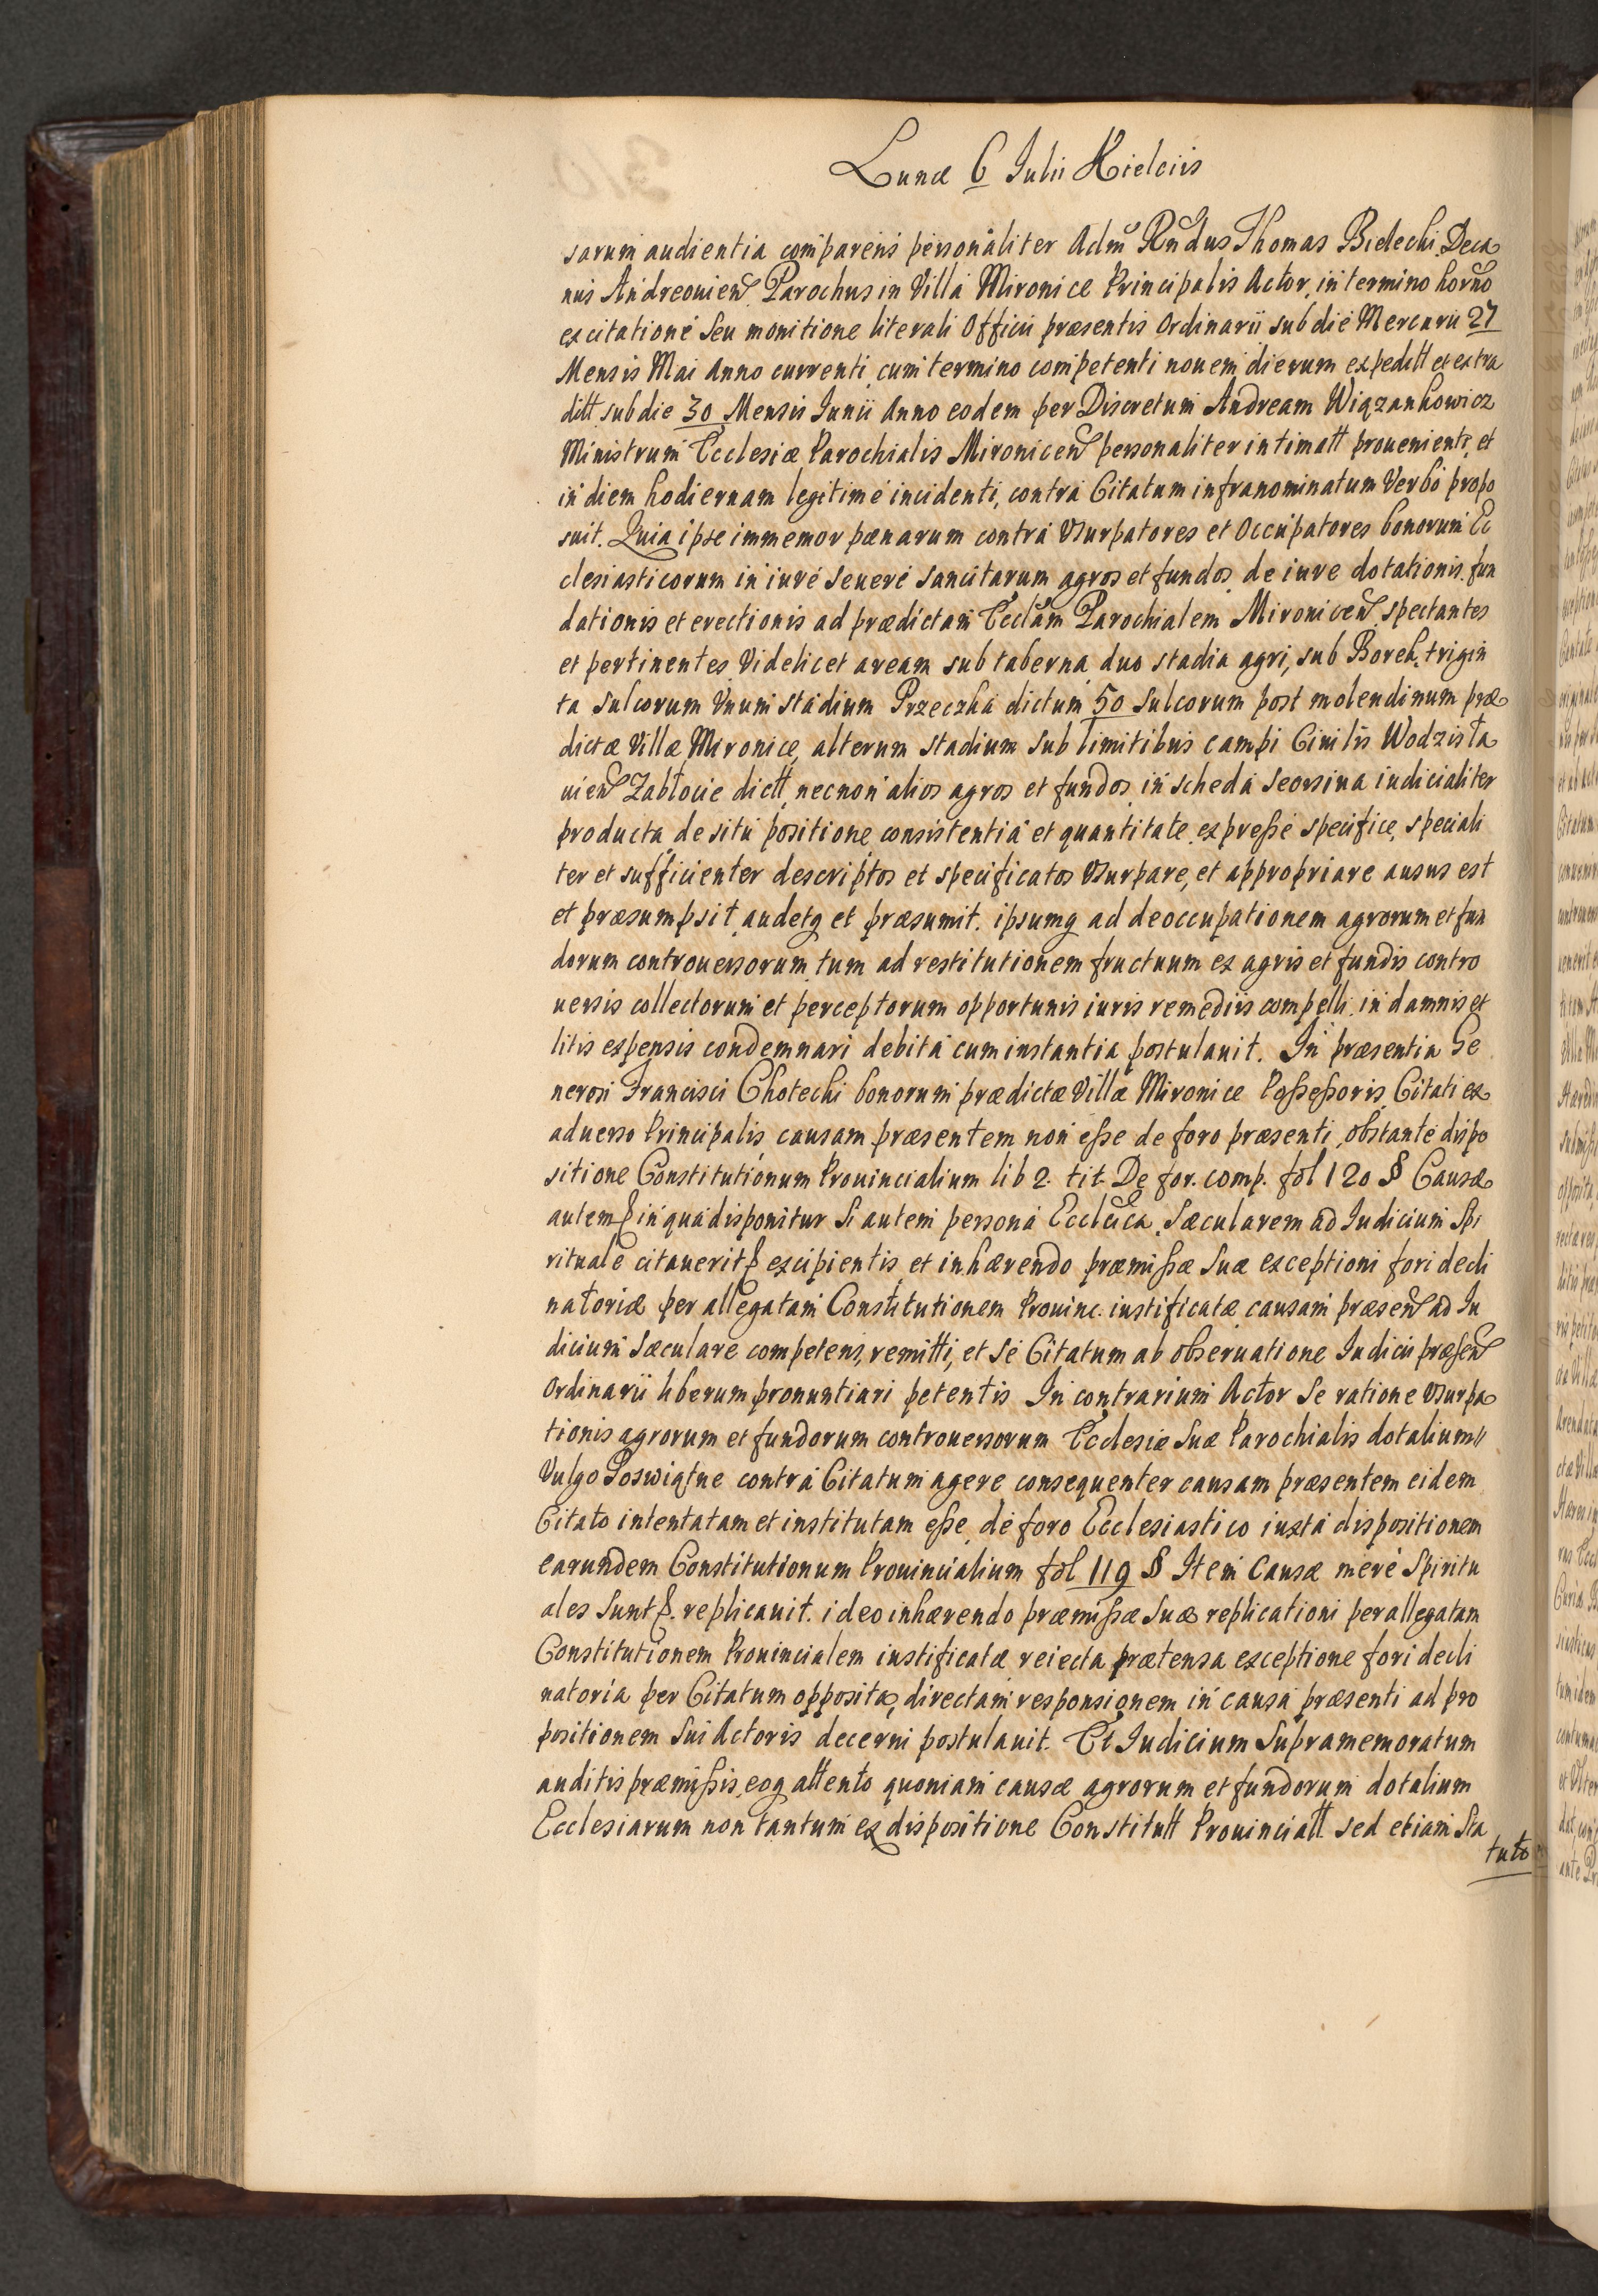 Lunæ 6 Iulii Kielciis
sarum audientia comparens personaliter Adm Rndus Thomas Bielecki Deca
nus Andreouien Parochus in Villa Mironice Principalis Actor, in termino horno
ex citatione seu monitione literali Officii præsentis Ordinarii sub die Mercurii 27
Mensis Mai Anno currenti, cum termino competenti nouem dierum expeditt et extra
ditt sub die 30 Mensis Iunii Anno eodem per Discretum Andream Wiązankowicz
Ministrum Ecclesiæ Parochialis Mironicen personaliter intimatt prouenienti, et
in diem hodiernam legitime incidenti, contra Citatum infranominatum Verbo propo
suit. Quia ipse immemor pænarum contra Vsurpatores et Occupatores bonorum Ec
clesiasticorum in iure seuere sancitarum agros et fundos de iure dotationis fun
dationis et erectionis ad prædictam Ecclam Parochialem Mironicen spectantes
et pertinentes Videlicet aream sub taberna duo stadia agri, sub Borek, trigin
ta sulcorum Vnum stadium Przeczka dictum 50 sulcorum post molendinum præ
dictæ Villæ Mironice, alterum stadium sub limitibus campi Ciuilis Wodzisła
uien Zabłocie dictt, necnon alios agros et fundos in scheda seorsiua iudicialiter
producta de situ positione consistentia et quantitate expreſse specifice, speciali
ter et sufficienter descriptos et specificatos Vsurpare, et appropriare ausus est
et præsumpsit audetq et præsumit. ipsumq ad deoccupationem agrorum et fun
dorum controuersorum tum ad restitutionem fructuum ex agris et fundis contro
uersis collectorum et perceptorum opportunis iuris remediis compelli in damnis et
litis expensis condemnari debita cum instantia postulauit. In præsentia Ge
nerosi Francisci Chotecki bonorum prædictæ Villæ Mironice Poſseſsoris Citati ex
aduerso Principalis causam præsentem non eſse de foro præsenti, obstante dispo
sitione Constitutionum Prouincialium lib 2. tit. De for. comp. fol 120 § Causæ
autem in qua disponitur Si autem persona Ecclica Sæcularem ad Iudicium Spi
rituale citauerit excipientis, et inhærendo præmiſsæ suæ exceptioni fori decli
natoriæ per allegatam Constitutionem Prouinc. iustificatæ causam præsen ad Iu
dicium Sæculare competens, remitti, et se Citatum ab obseruatione Iudicii præsen
Ordinarii liberum pronuntiari petentis In contrarium Actor se ratione Vsurpa
tionis agrorum et fundorum controuersorum Ecclesiæ suæ Parochialis dotalium
Vulgo Poswiętne contra Citatum agere consequenter causam præsentem eidem
Citato intentatam et institutam eſse de foro Ecclesiastico iuxta dispositionem
earundem Constitutionum Prouincialium fol 119 § Item Causæ mere Spiritu
ales sunt replicauit. ideo inhærendo præmiſsæ suæ replicationi per allegatam
Constitutionem Prouincialem iustificatæ reiecta prætensa exceptione fori decli
natoria per Citatum opposita, directam responsionem in causa præsenti ad pro
positionem sui Actoris decerni postulauit. Et Iudicium Supramemoratum
auditis præmiſsis, eoq attento quoniam causæ agrorum et fundorum dotalium
Ecclesiarum non tantum ex dispositione Constitutt Prouincialt sed etiam Sta
tuto